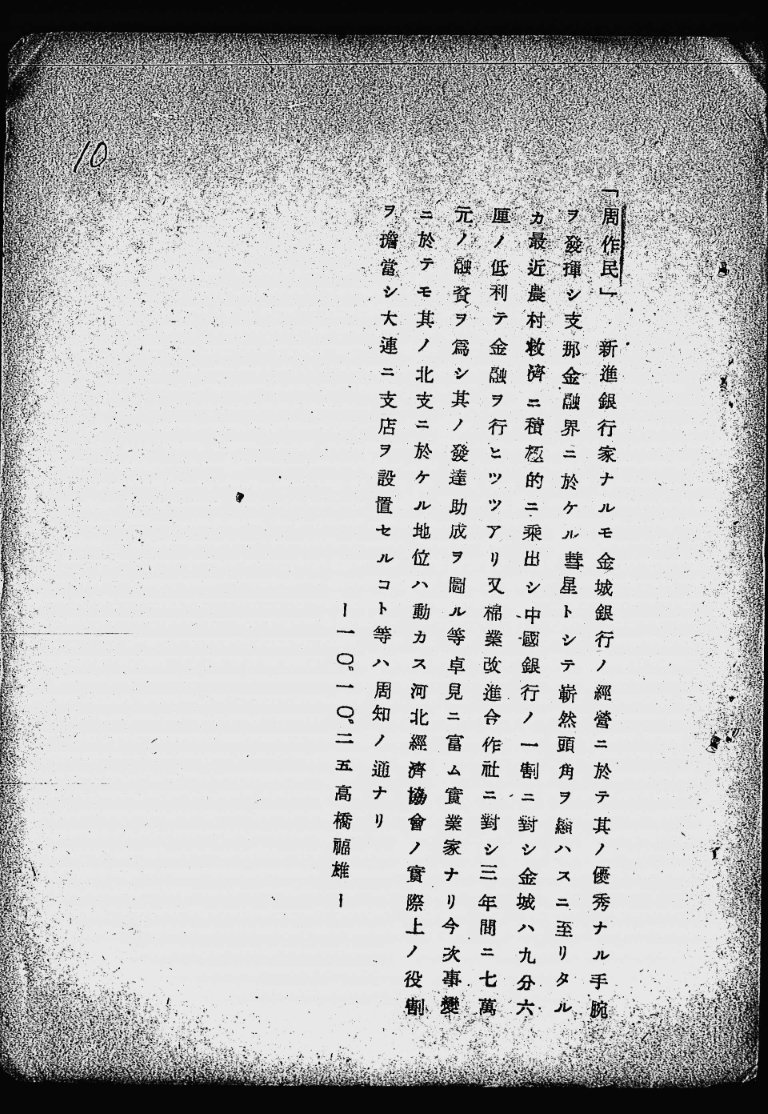 10
「周作民」　新進銀行家ナルモ金城銀行ノ經營ニ於テ其ノ優秀ナル手腕
ヲ發揮シ支那金融界ニ於ケル彗星トシテ嶄然頭角ヲ顯ハスニ至リタル
カ最近農村救濟ニ積極的ニ乘出シ中國銀行ノ一割ニ對シ金城ハ九分六
厘ノ低利テ金融ヲ行ヒツツアリ又棉業改進合作社ニ對シ三年間ニ七萬
元ノ融資ヲ爲シ其ノ發達助成ヲ圖ル等卓見ニ富ム實業家ナリ今次事變
ニ於テモ其ノ北支ニ於ケル地位ハ動カス河北經濟協會ノ實際上ノ役割
ヲ擔當シ大連ニ支店ヲ設置セルコト等ハ周知ノ通ナリ
ー一〇、一〇、二五高橋福雄ー